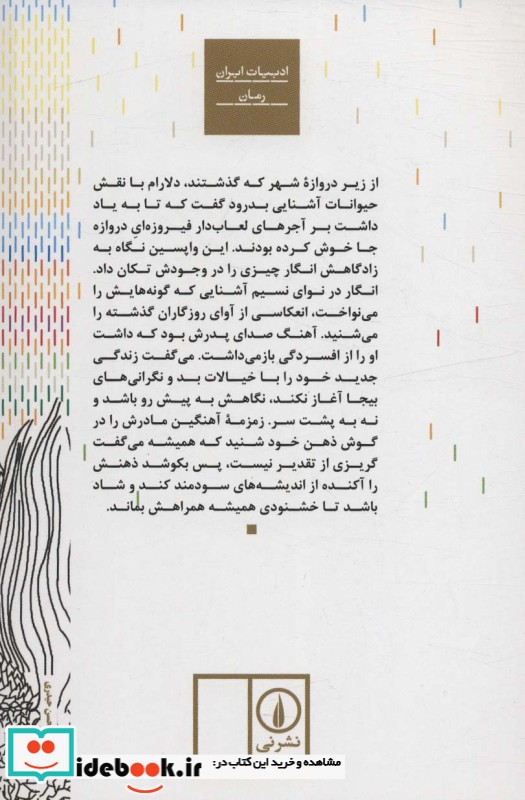 ادبیات ایران
رمان
از زیر دروازهٔ شهر که گذشتند، دلارام با نقش
حیوانات آشنایی بدرود گفت که تا به یاد
داشت بر آجرهای لعاب‌دار فیروزه‌ایِ دروازه
جا خوش کرده بودند. این واپسین نگاه به
زادگاهش انگار چیزی را در وجودش تکان داد.
انگار در نوای نسیم آشنایی که گونه‌هایش را
می‌نواخت، انعکاسی از آوای روزگاران گذشته را
می‌شنید. آهنگ صدای پدرش بود که داشت
او را از افسردگی بازمی‌داشت. می‌گفت زندگی
جدید خود را با خیالات بد و نگرانی‌های
بیجا آغاز نکند، نگاهش به پیش رو باشد و
نه به پشت سر. زمزمهٔ آهنگین مادرش را در
گوش ذهن خود شنید که همیشه می‌گفت
گریزی از تقدیر نیست، پس بکوشد ذهنش
را آکنده از اندیشه‌های سودمند کند و شاد
باشد تا خشنودی همیشه همراهش بماند.
حیدری
نشرنی
مشاهده و خرید این کتاب در:
idebook.ir